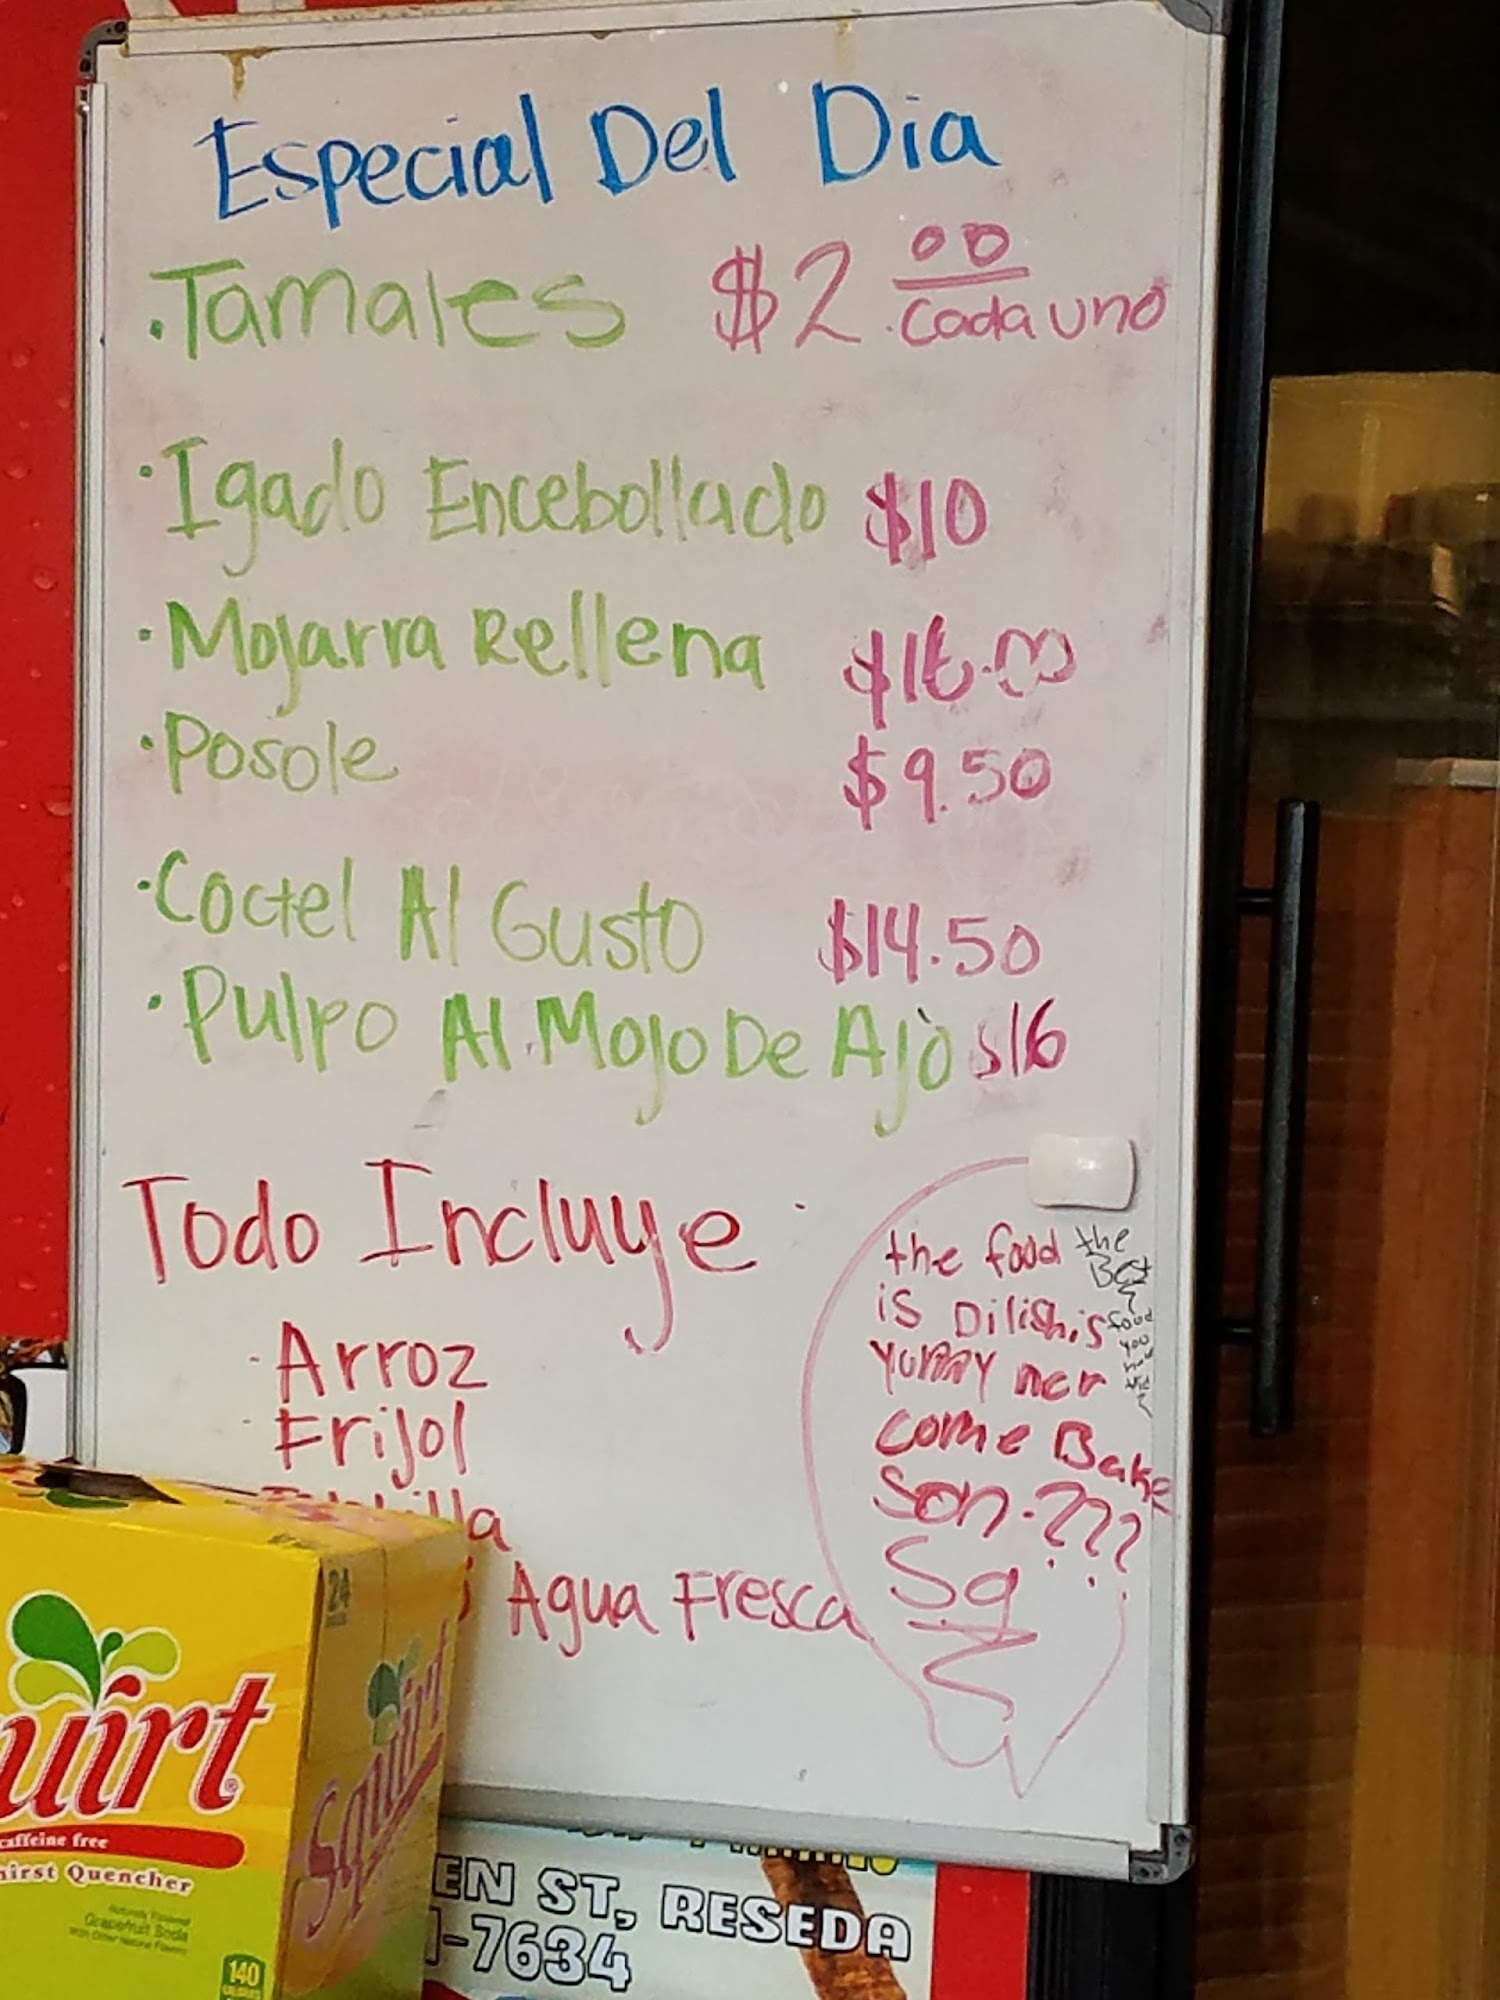 Especial Del Dia
.Tamales $2 00 cada uno
·Igado Encebollado $10
·Mojarra Rellena $16.00
·Posole $9.50
·Coctel Al Gusto $14.50
·Pulpo Al Mojo De Ajo $16
Todo Incluye
·Arroz
·Frijol
lla
Agua Fresca
the food
is Dilishis
yummy
come Bake
son.???
the
Best
food
you
24
uirt
Squirt
caffeine free
hirst Quencher
Naturally Flavored
Grapefruit Soda
With Other Natural Flavors
140
CALORIES
EN ST, RESEDA
1-7634